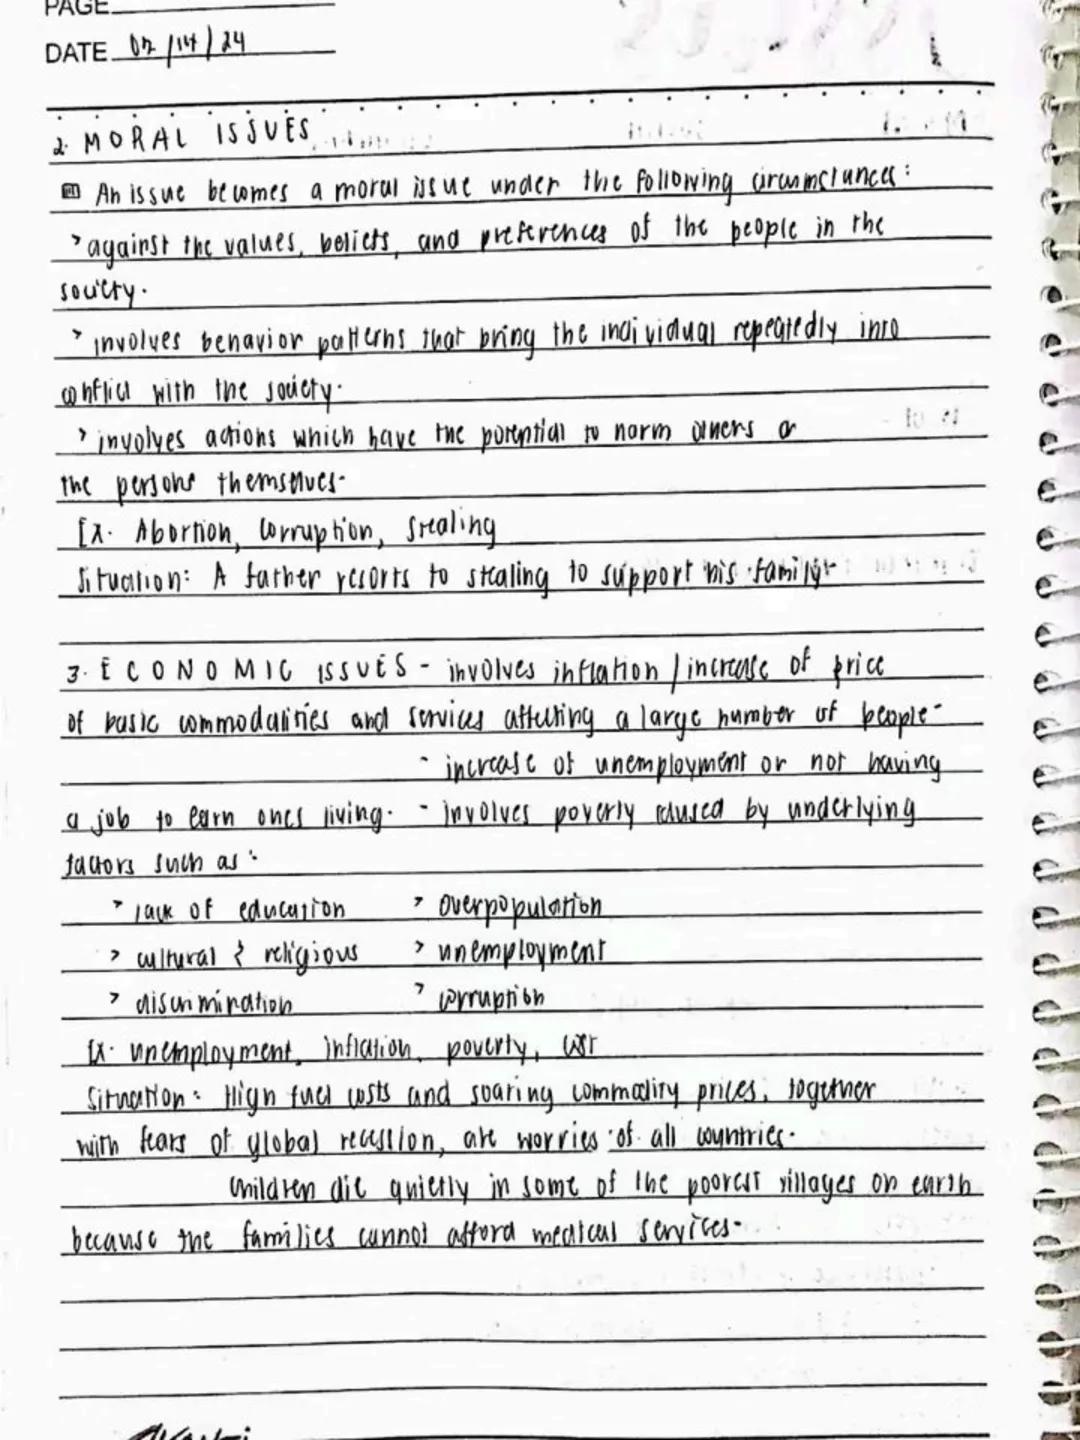 PAGE
DATE 02/14/24
2. MORAL ISSUES
An issue becomes a moral issue under the following circumstances:
> against the values, beliefs, and preferences of the people in the
society.
> involves behavior patterns that bring the individual repeatedly into
conflict with the society.
> involves actions which have the potential to harm others or
the persons themselves.
Ex. Abortion, Corruption, Stealing
Situation: A father resorts to stealing to support his family.
3. ECONOMIC ISSUES - involves inflation / increase of price
of basic commodalities and services affecting a large number of people.
- increase of unemployment or not having
a job to earn ones living. - Involves poverty caused by underlying
factors such as:
> lack of education > overpopulation
> cultural & religious > unemployment
> discrimination > corruption
Ex. unemployment, inflation, poverty, war
Situation: High fuel costs and soaring commodity prices, together
with fears of global recession, are worries of all countries.
Children die quietly in some of the poorest villages on earth
because the families cannot afford medical services.